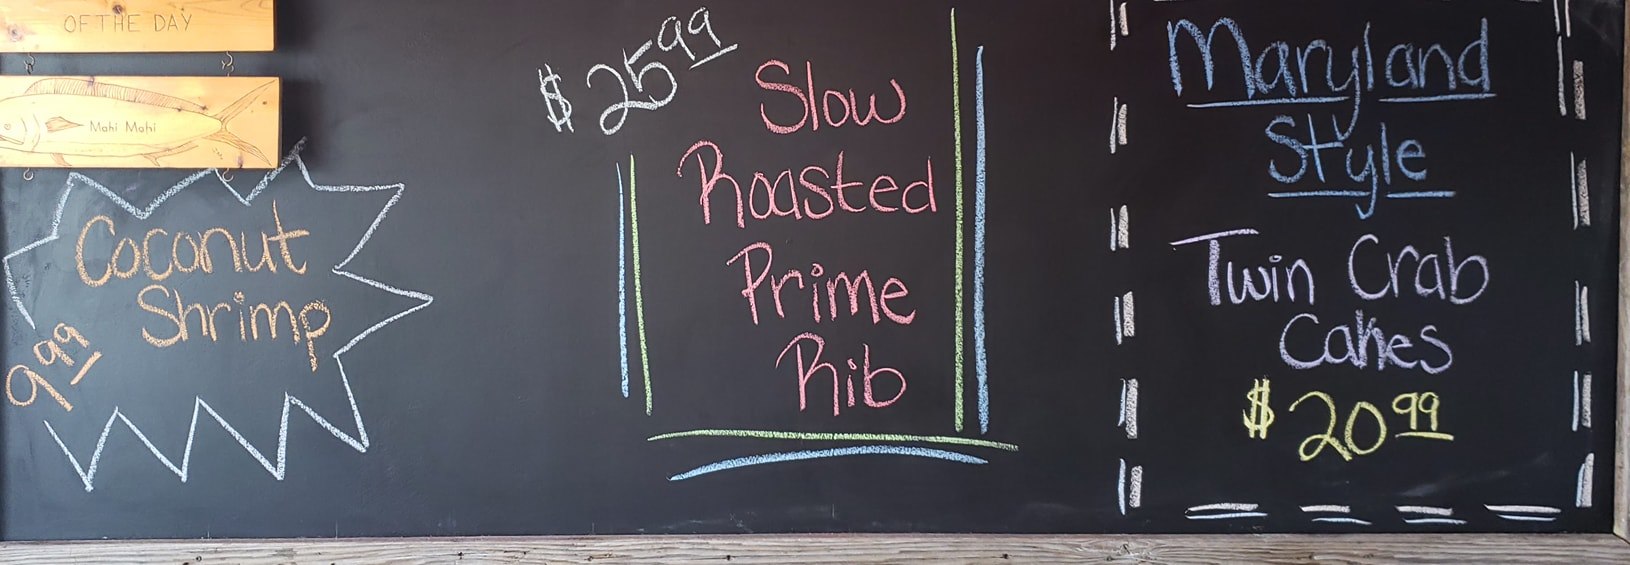 OF THE DAY
Mahi Mahi
Coconut
Shrimp
9.99
$25.99
Slow
Roasted
Prime
Rib
Maryland
Style
Twin Crab
Cakes
$20.99